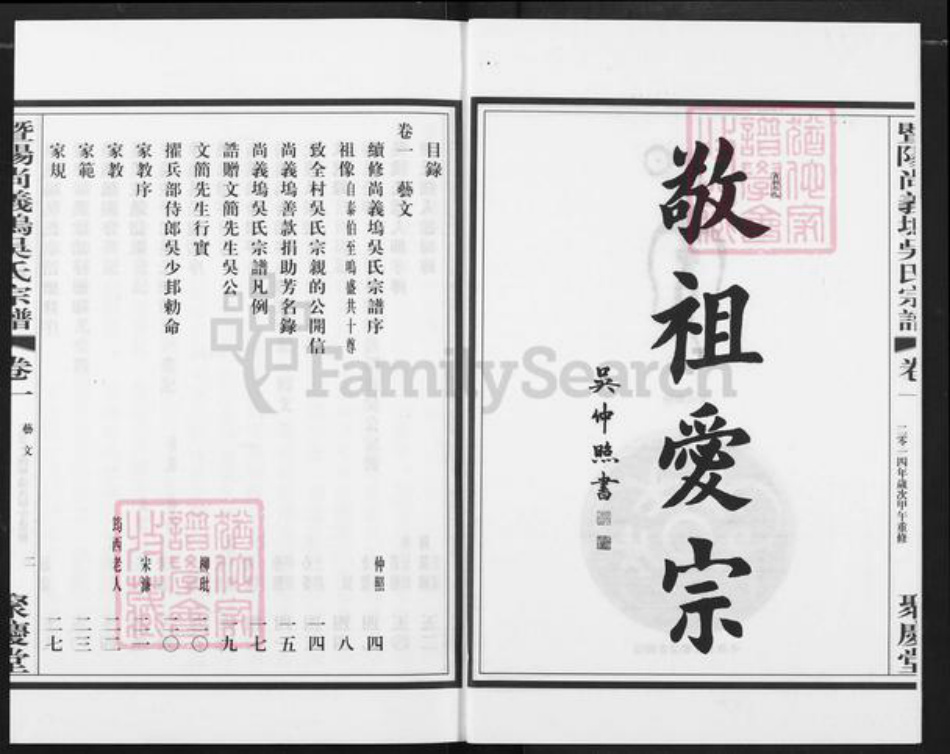 暨陽尚義塢吳氏宗譜
卷一
二零一四年歲次甲午重修
聚慶堂
敬祖愛宗
吳仲照書
目錄
卷一 藝文
續修尚義塢吳氏宗譜序 仲照 四
祖像自泰伯至鳴盛共十尊 八
致全村吳氏宗親的公開信 一四
尚義塢善款捐助芳名錄 一五
尚義塢吳氏宗譜凡例 一七
誥贈文簡先生吳公 一九
文簡先生行實 柳玭 二〇
擢兵部侍郎吳少邦勅命 二〇
家教序 宋濂
家教 筠西老人
家範 二三
家規 二七
暨陽尚義塢吳氏宗譜
卷一
藝文
二
聚慶堂
猶他家譜學會收藏
猶他家譜學會收藏
FamilySearch